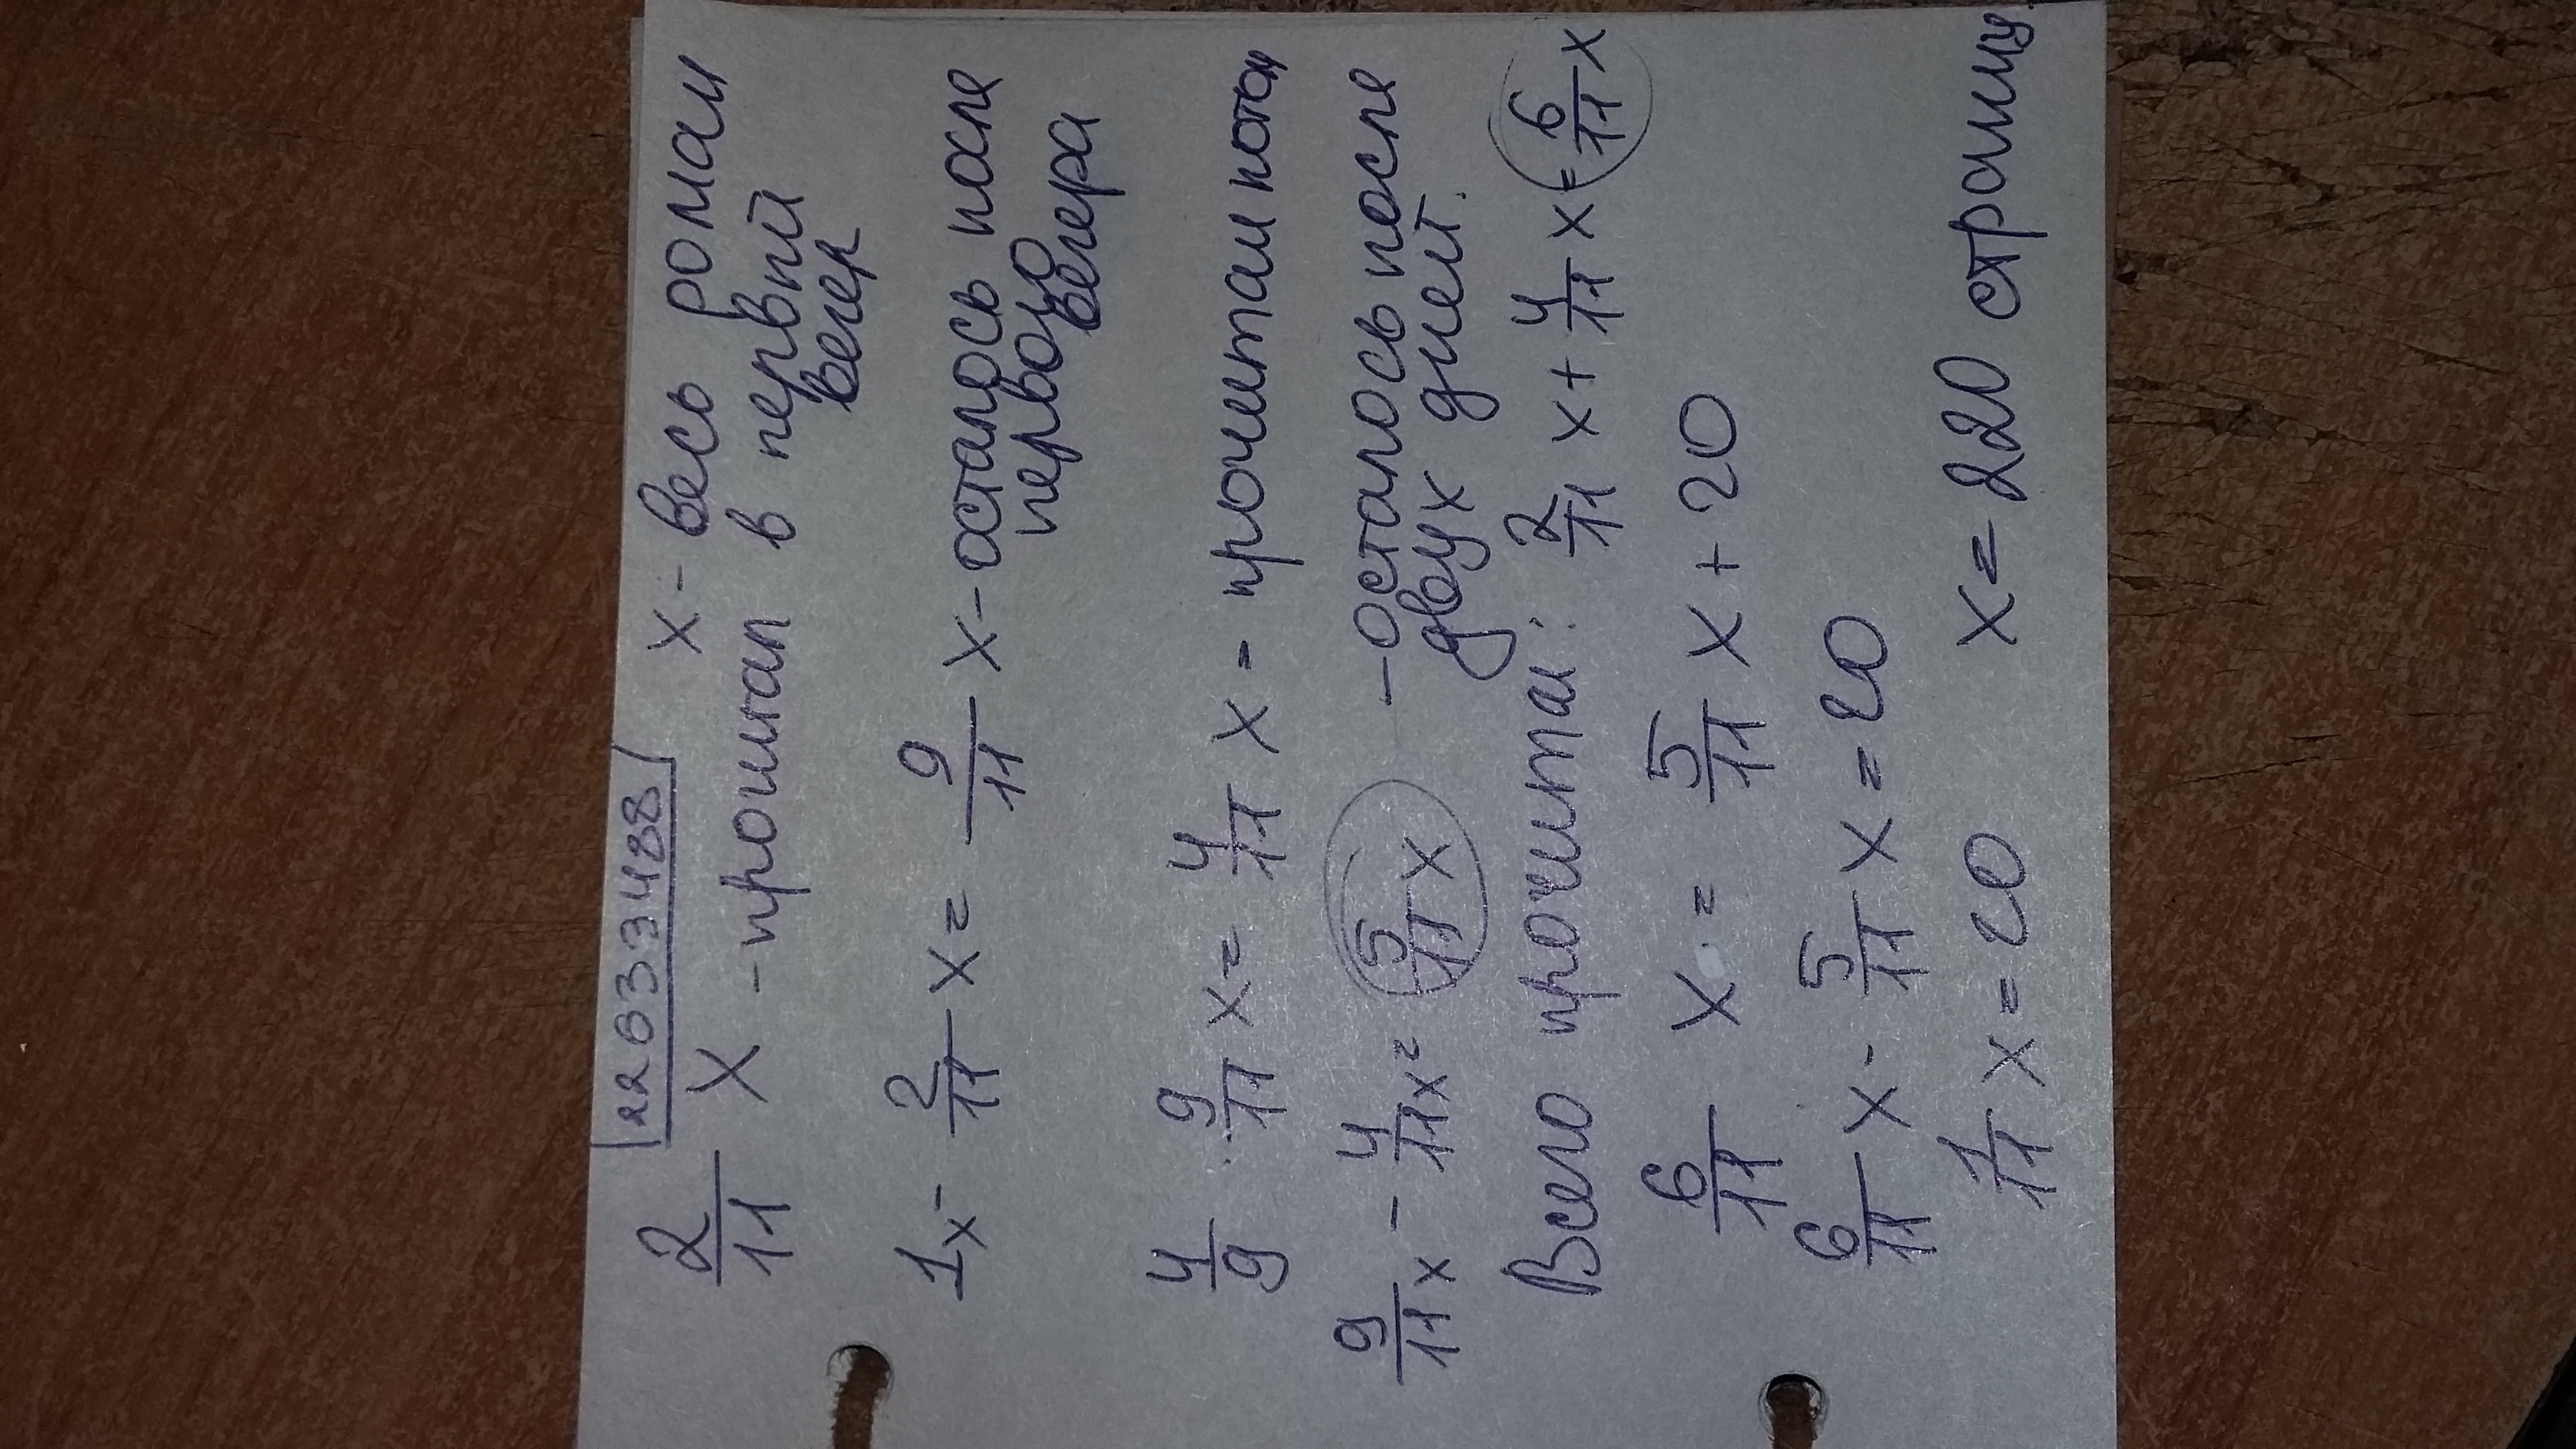 22633488
x - весь роман
2/11 x - прочитал в первый
вечер
1x - 2/11 x = 9/11 x - осталось после
первого
вечера
4/9 · 9/11 x = 4/11 x = прочитали
9/11 x - 4/11 x = 5/11 x - осталось после
двух дней.
Всего прочитал: 2/11 x + 4/11 x = 6/11 x
6/11 x = 5/11 x + 20
6/11 x - 5/11 x = 20
1/11 x = 20 x = 220 страниц